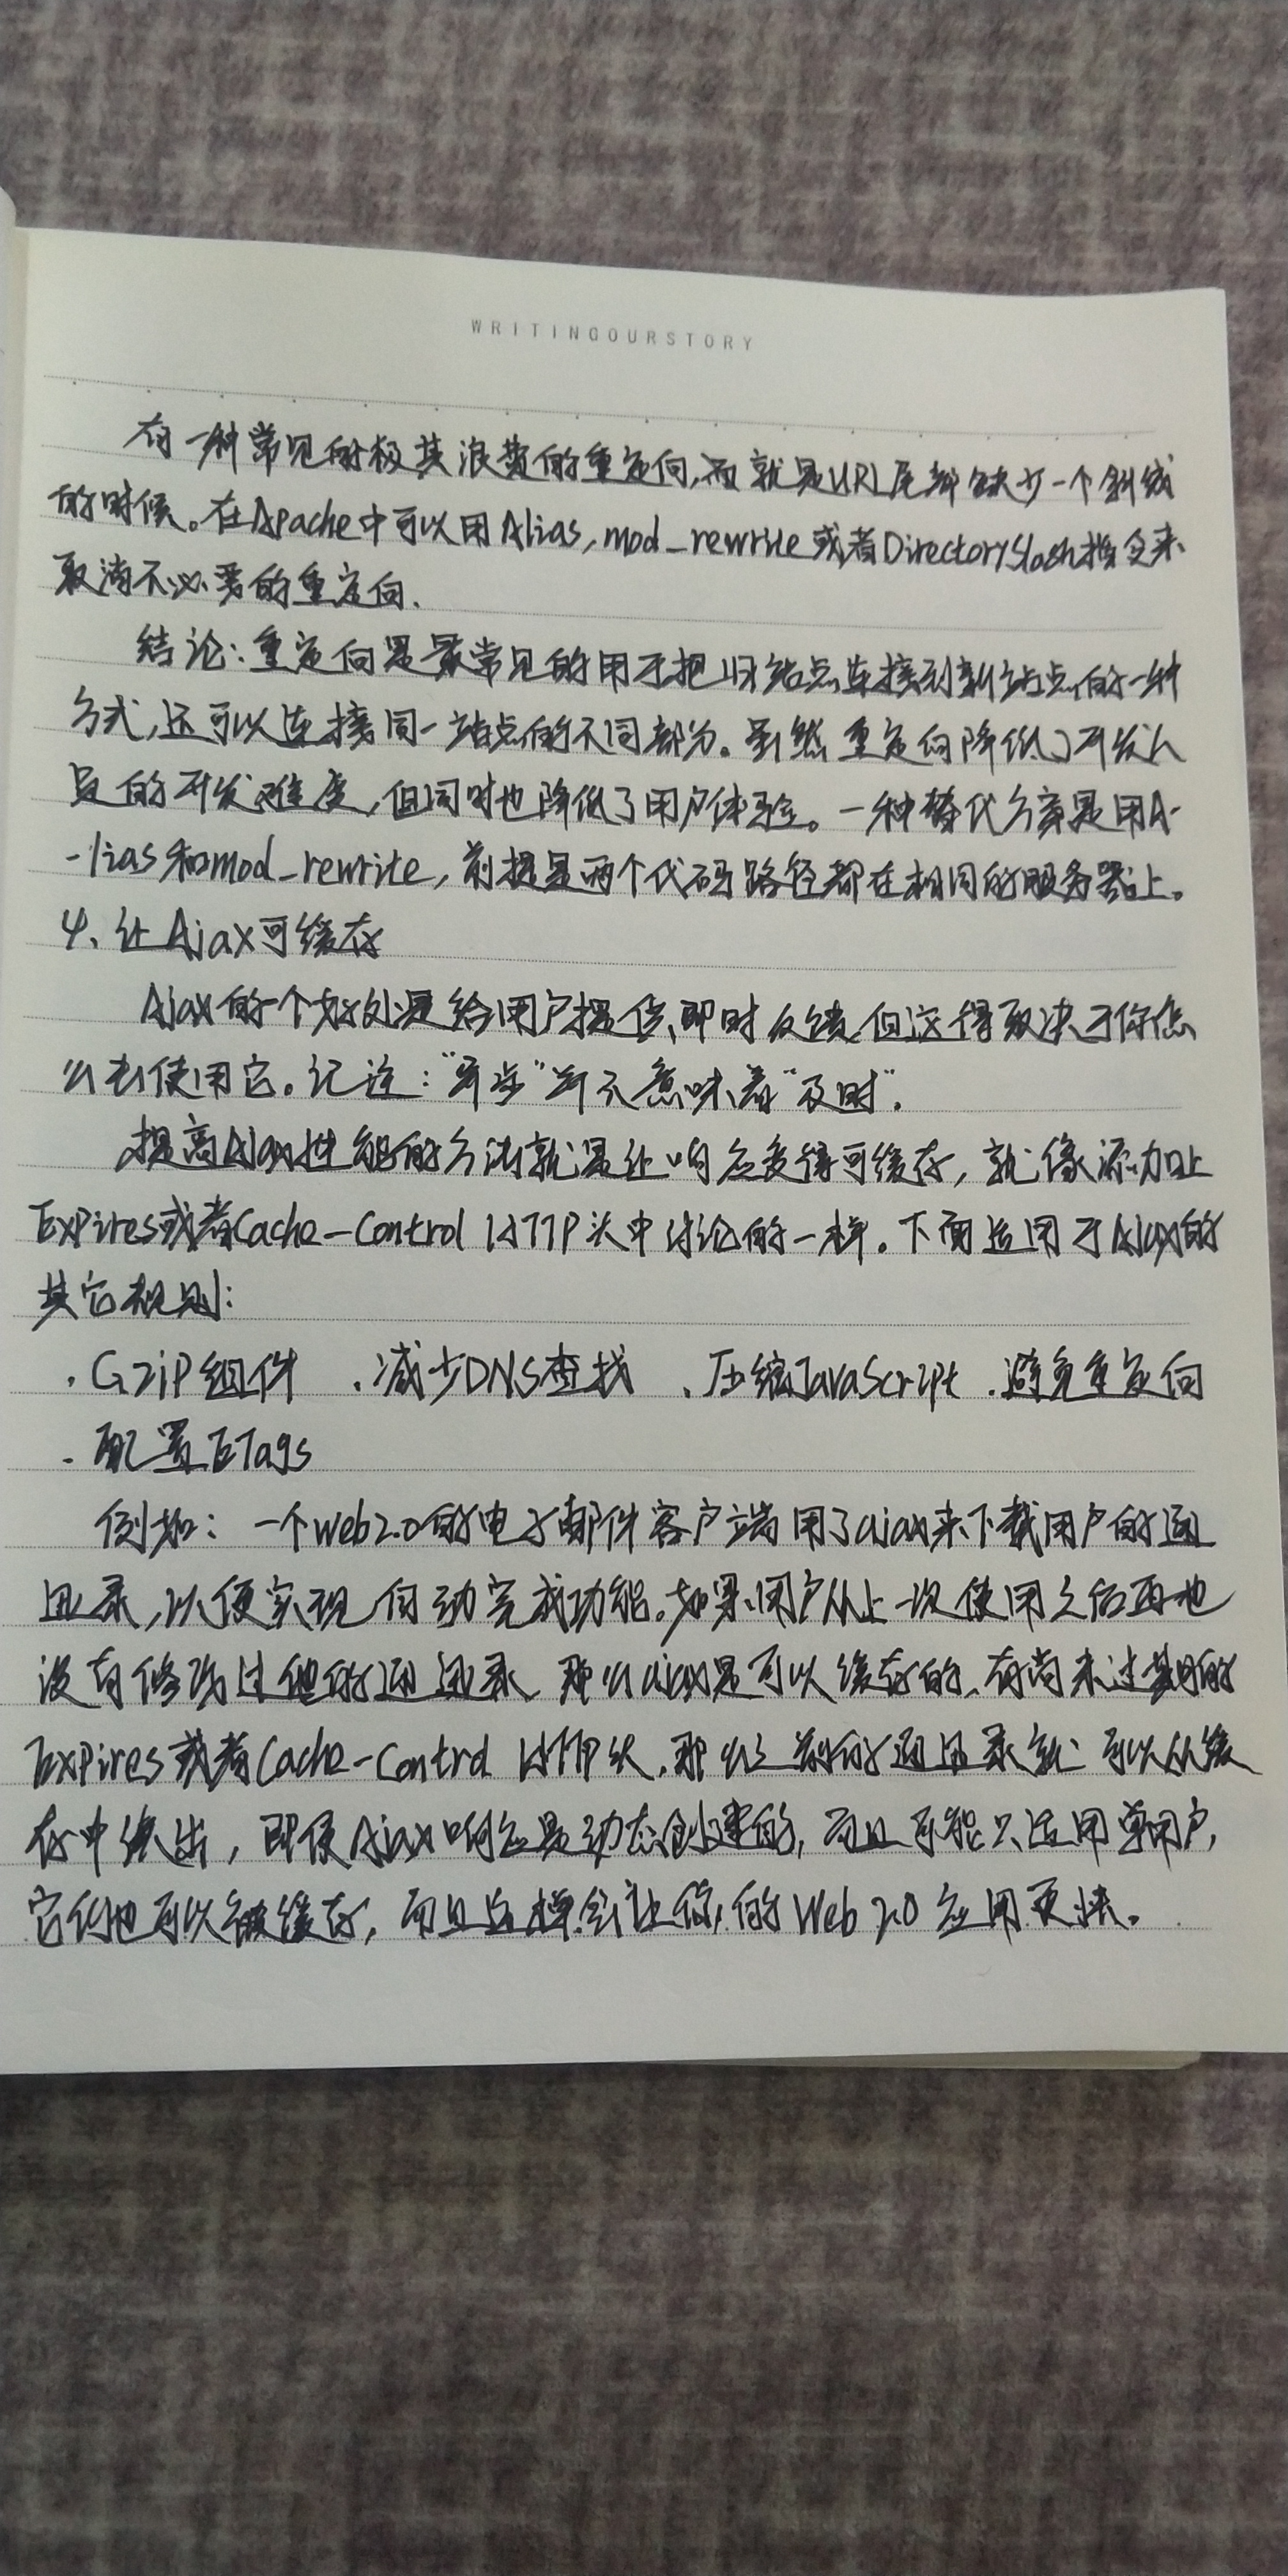 WRITINGOURSTORY
有一种常见的极其浪费的重定向,而就是URL尾部缺少一个斜线
的时候。在Apache中可以用Alias,mod_rewrite或者DirectorySlash指令来
取消不必要的重定向.
结论:重定向是最常见的用于把旧站点连接到新站点的一种
方式,还可以连接同一站点的不同部分。虽然重定向降低了开发人
员的开发难度,但同时也降低了用户体验。一种替代方案是用A-
-lias和mod_rewrite,前提是两个代码路径都在相同的服务器上。
4、让Ajax可缓存
Ajax的一个好处是给用户提供即时反馈,但这得取决于你怎
么去使用它。记住:"异步"并不意味着"及时".
提高Ajax性能的方法就是让响应变得可缓存,就像添加上
Expires或者Cache-Control HTTP头中讨论的一样.下面适用于Ajax的
其它规则:
.Gzip组件 .减少DNS查找 .压缩JavaScript .避免重定向
.配置ETags
例如:一个web2.0的电子邮件客户端用了ajax来下载用户的通
迅录,以便实现自动完成功能。如果用户从上一次使用之后再也
没有修改过他的通迅录,那么ajax是可以缓存的,有尚未过期的
Expires或者Cache-Control HTTP头,那么之前的通迅录就可以从缓
存中读出,即使Ajax响应是动态创建的,而且可能只适用单用户,
它们也可以被缓存,而且这样会让你的Web 2.0应用更快。